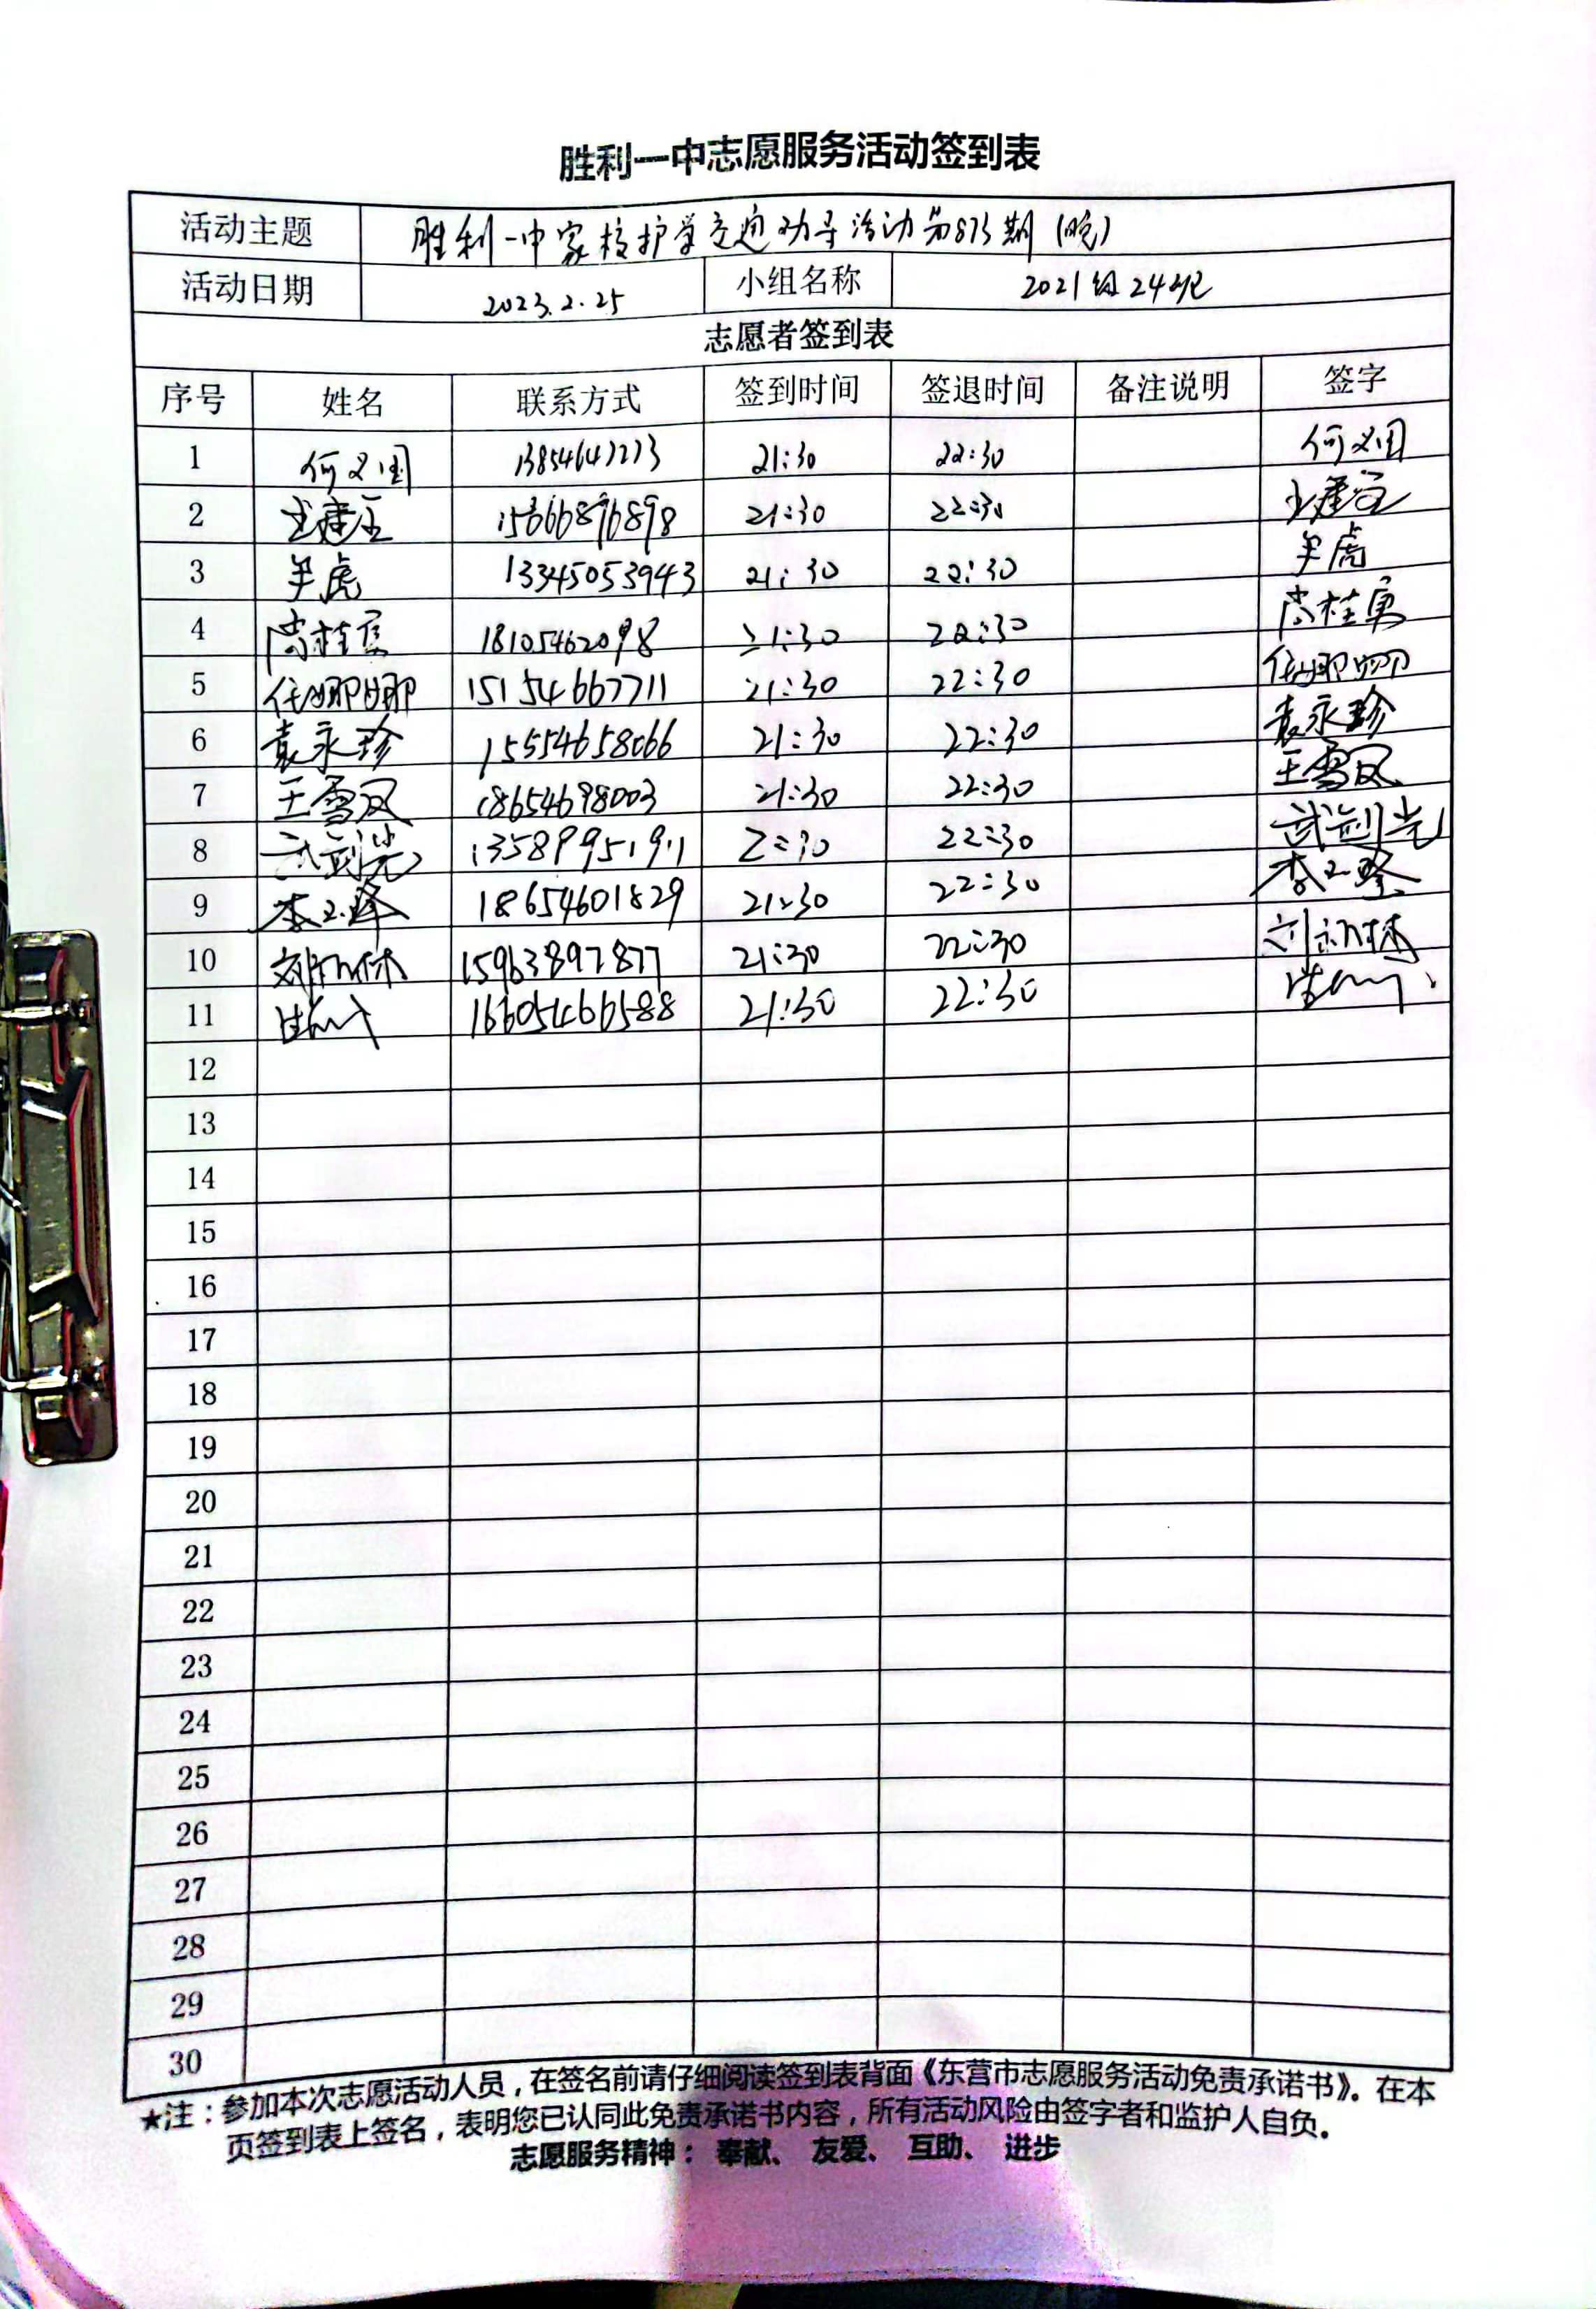 胜利一中志愿服务活动签到表
活动主题 胜利一中家校护学交通劝导活动第873期(晚)
活动日期 2023.2.25 小组名称 2021级24班
志愿者签到表
序号 姓名 联系方式 签到时间 签退时间 备注说明 签字
1 何文国 13854647273 21:30 22:30 何文国
2 21:30 22:30
3 羊虎 13345053943 21:30 22:30 羊虎
4 尚桂勇 18105462098 21:30 22:30 尚桂勇
5 任娜娜 15154667711 21:30 22:30 任娜娜
6 袁永珍 15554658066 21:30 22:30 袁永珍
7 王雪凤 18654698003 21:30 22:30 王雪凤
8 武剑光 13589951911 22:30 武剑光
9 18654601829 21:30 22:30
10 15963897877 21:30 22:30
11 16605466588 21:30 22:30
12
13
14
15
16
17
18
19
20
21
22
23
24
25
26
27
28
29
30
★注:参加本次志愿活动人员,在签名前请仔细阅读签到表背面《东营市志愿服务活动免责承诺书》。在本
页签到表上签名,表明您已认同此免责承诺书内容,所有活动风险由签字者和监护人自负。
志愿服务精神: 奉献、 友爱、 互助、 进步